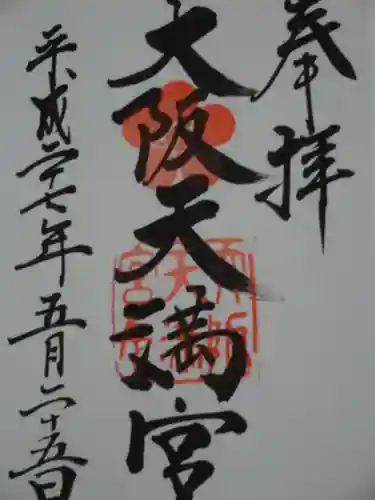 奉拝
大阪天満宮
平成二十七年五月二十五日